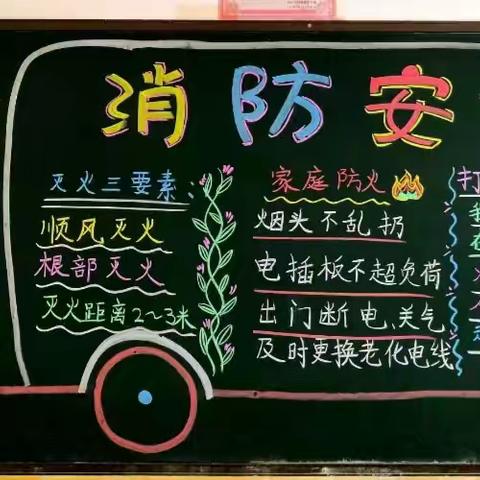 消防安
灭火三要素:
顺风灭火
根部灭火
灭火距离2~3米
家庭防火
烟头不乱扔
电插板不超负荷
出门断电、关气
及时更换老化电线
打